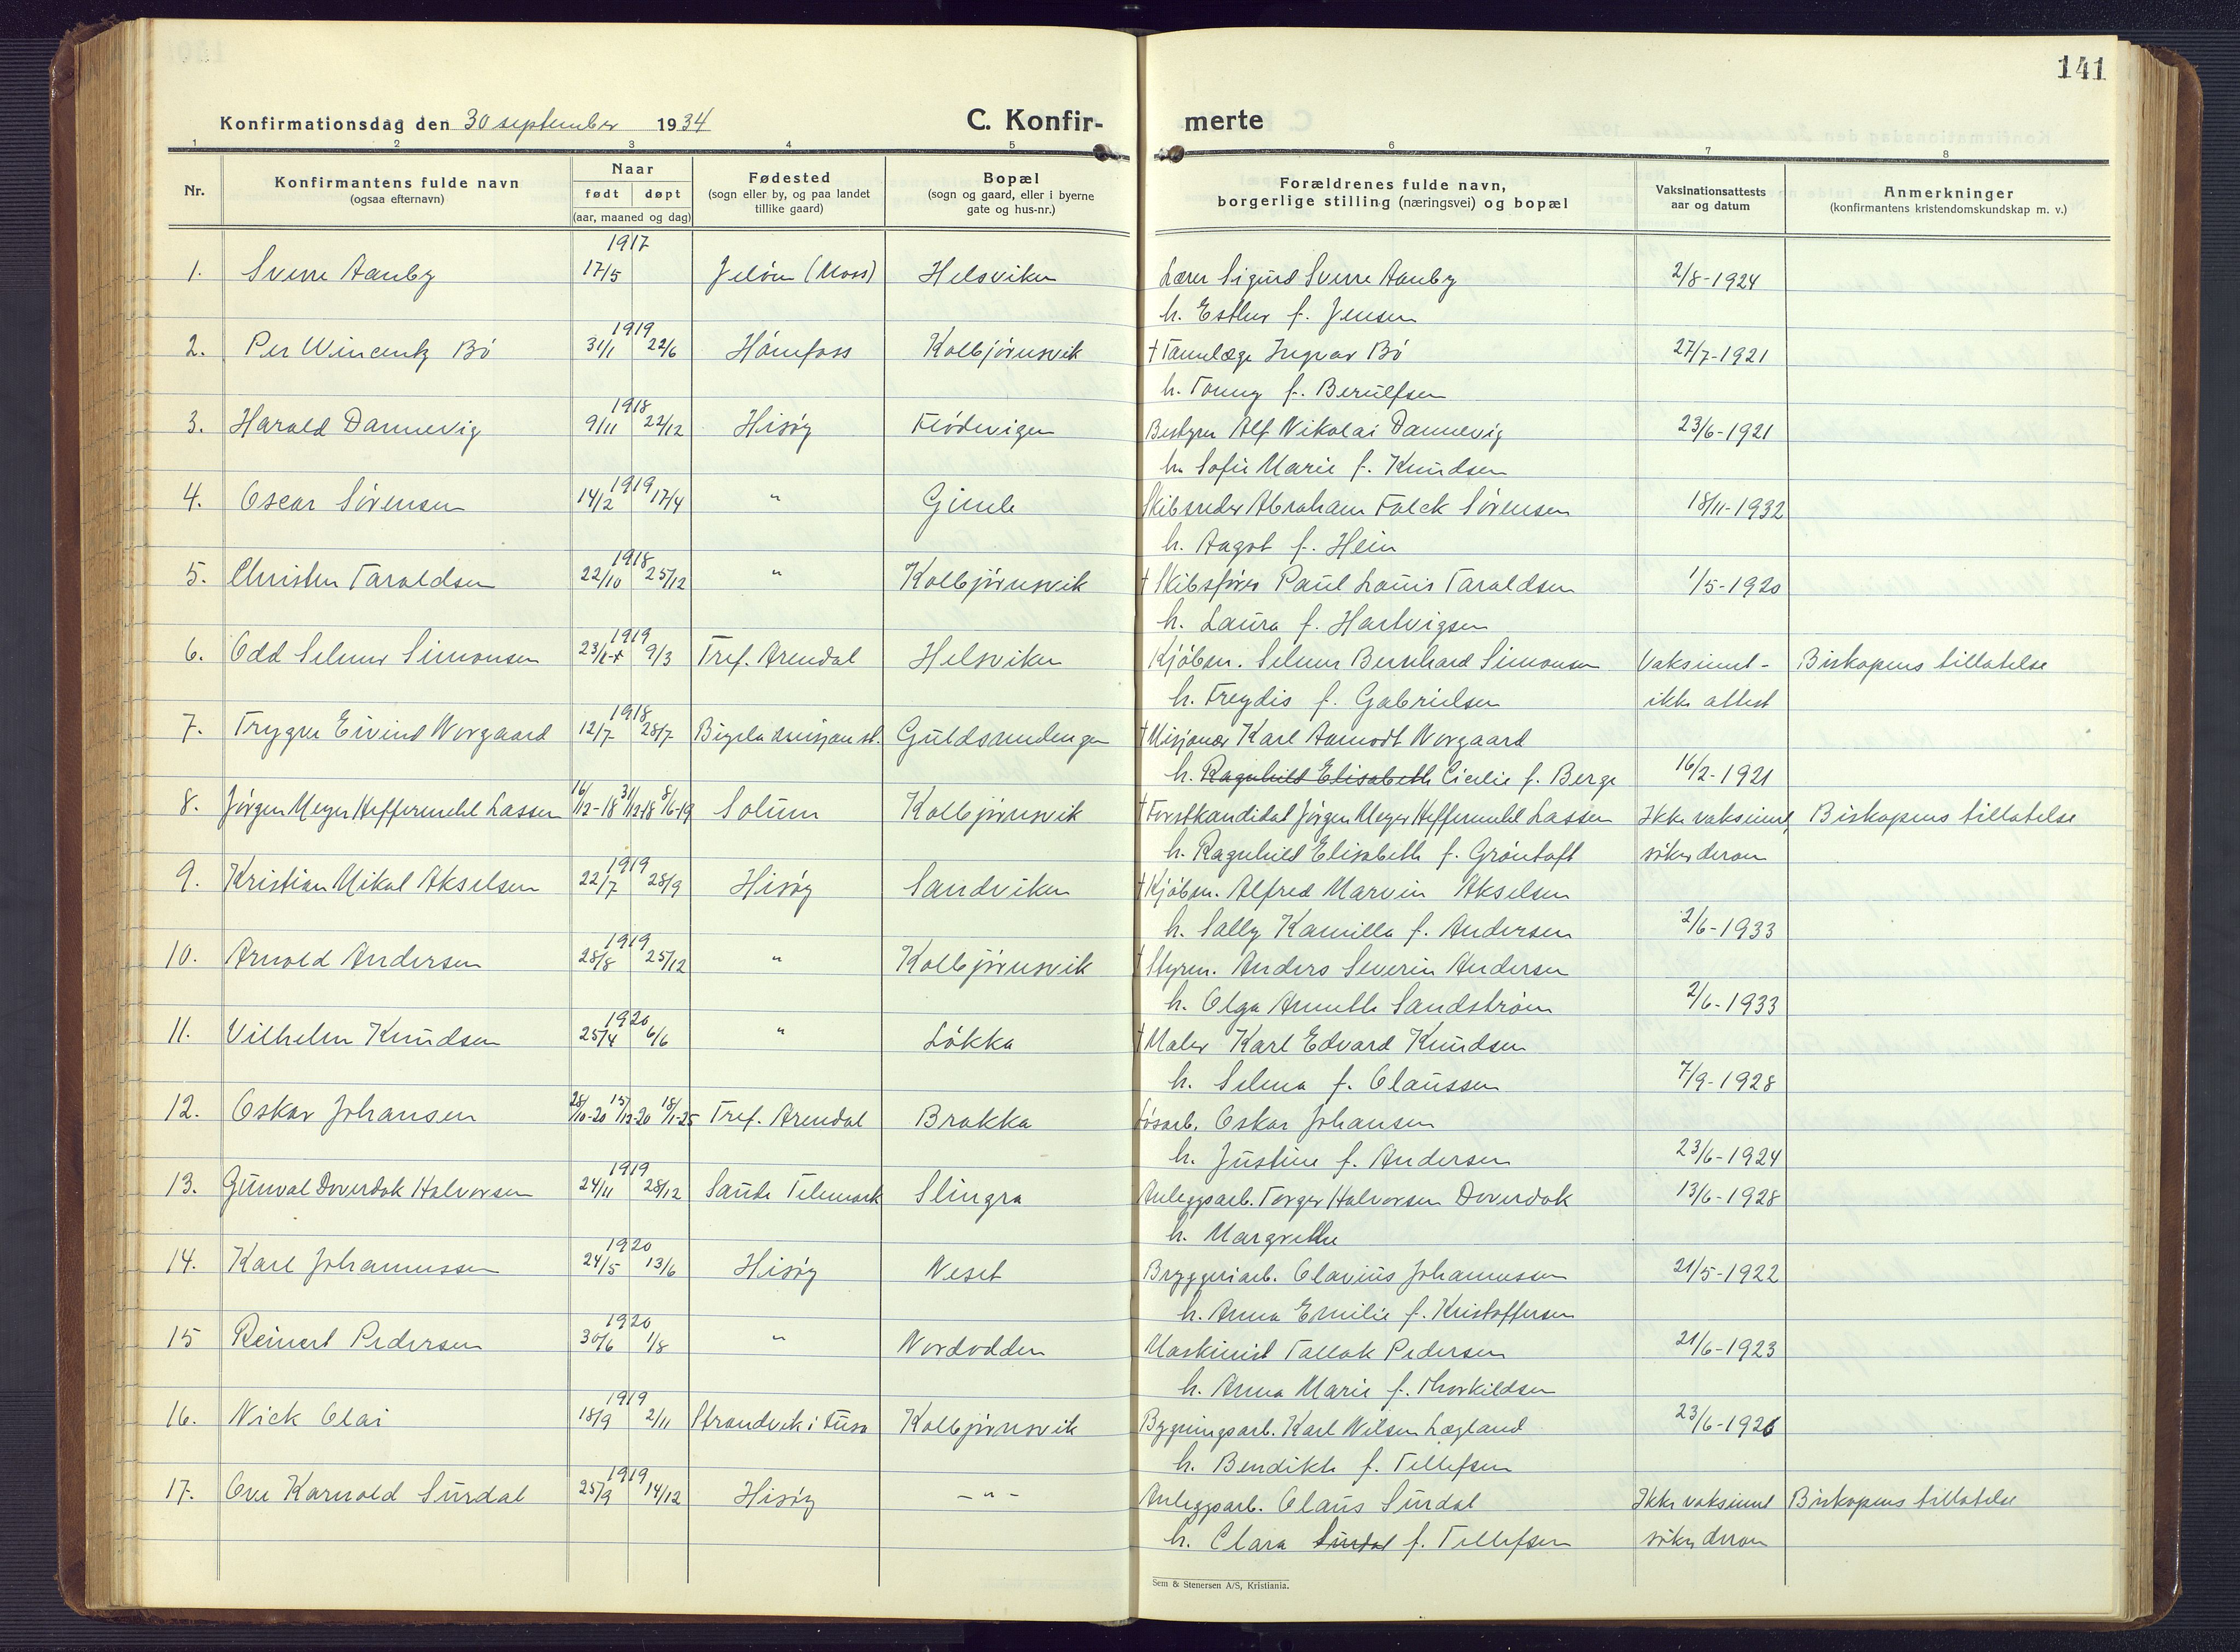 141
Konfirmationsdag den 30 september 1934
C. Konfir-
merte
1 2 3 4 5 6 7 8
Nr.
Konfirmantens fulde navn
(ogsaa efternavn)
Naar
født døpt
(aar, maaned og dag)
Fødested
(sogn eller by, og paa landet
tillike gaard)
Bopæl
(sogn og gaard, eller i byerne
gate og hus-nr.)
Forældrenes fulde navn,
borgerlige stilling (næringsvei) og bopæl
Vaksinationsattests
aar og datum
Anmerkninger
(konfirmantens kristendomskundskap m. v.)
1917
1. Sverre Aanby 17/5 Jeløen (Moss) Helsviken Lærer Sigurd Sverre Aanby 2/8-1924
h. Esther f. Jensen
1919
2. Per Wincentz Bö 31/1 22/6 Hönefoss Kolbjörnsvik † Tannlæge Ingvar Bö 27/7-1921
h. Tonny f. Berulfsen
1918
3. Harald Dannevig 9/11 22/12 Hisøy Flödevigen Bestyrer Alf Nikolai Dannevig 23/6-1921
h. Sofie Marie f. Knudsen
1919
4. Oscar Sörensen 14/2 17/4 " Gimle Skibsreder Abraham Falck Sörensen 18/11-1932
h. Aagot f. Hein
1918
5. Christen Taraldsen 22/10 25/12 " Kolbjörnsvik † Skibsförer Paul Louis Taraldsen 1/5-1920
h. Laura f. Hartvigsen
1919
6. Odd Selmer Simonsen 23/1 9/3 Tref. Arendal Helsviken Kjöbm. Selmer Bernhard Simonsen Vaksinert- Biskopens tillatelse
h. Freydis f. Gabrielsen ikke attest
1918
7. Trygve Eivind Norgaard 12/7 28/7 Guldsmedengen † Misjonær Karl Aamodt Norgaard
h. Ragnhild Elisabeth Cicilie f. Berge 16/2-1921
8. Jörgen Meyer Heffermehl Lassen 16/12-18 31/12-18 8/6-19 Solum Kolbjörnsvik † Forstkandidat Jörgen Meyer Heffermehl Lassen Ikke vaksinert, Biskopens tillatelse
h. Ragnhild Elisabeth f. Gröntoft söker derom
1919
9. Kristian Mikal Akselsen 22/7 28/9 Hisøy Sandviken † Kjöbm. Alfred Marvin Akselsen
h. Sally Kamilla f. Andersen 2/6-1933
1919
10. Arnold Andersen 28/8 25/12 " Kolbjörnsvik † Styrm. Anders Severin Andersen
h. Olga Annette Sandström 2/6-1933
1920
11. Vilhelm Knudsen 25/4 6/6 " Lökka † Maler Karl Edvard Knudsen
h. Selma f. Claussen 7/9-1928
12. Oskar Johansen 28/10-20 15/12-20 18/1-25 Tref. Arendal Brakka Lösarb. Oskar Johansen
h. Justine f. Andersen 23/6-1924
1919
13. Gunval Doverdok Halvorsen 24/11 28/12 Saude Telemark Slingra Anleggsarb. Torger Halvorsen Doverdok 13/6-1928
h. Margrethe
1920
14. Karl Johannessen 24/5 13/6 Hisøy Neset Bryggeriarb. Olavius Johannessen 21/5-1922
h. Anna Emilie f. Kristoffersen
1920
15 Reinert Pedersen 30/6 1/8 " Nordodden Maskinist Tallak Pedersen 21/6-1923
h. Anna Marie f. Thorkildsen
1919
16. Nick Olai 18/9 2/11 Strandvik i Fusa Kolbjörnsvik Bygningsarb. Karl Nilsen Lægland 23/6-1926
h. Bendikte f. Tellefsen
1919
17. Ove Karnold Surdal 25/9 14/12 Hisøy -"- Anleggsarb. Olaus Surdal Ikke vaksinert Biskopens tillatelse
h. Clara Surdal f. Tellefsen söker derom
Sem & Stenersen A/S, Kristiania.